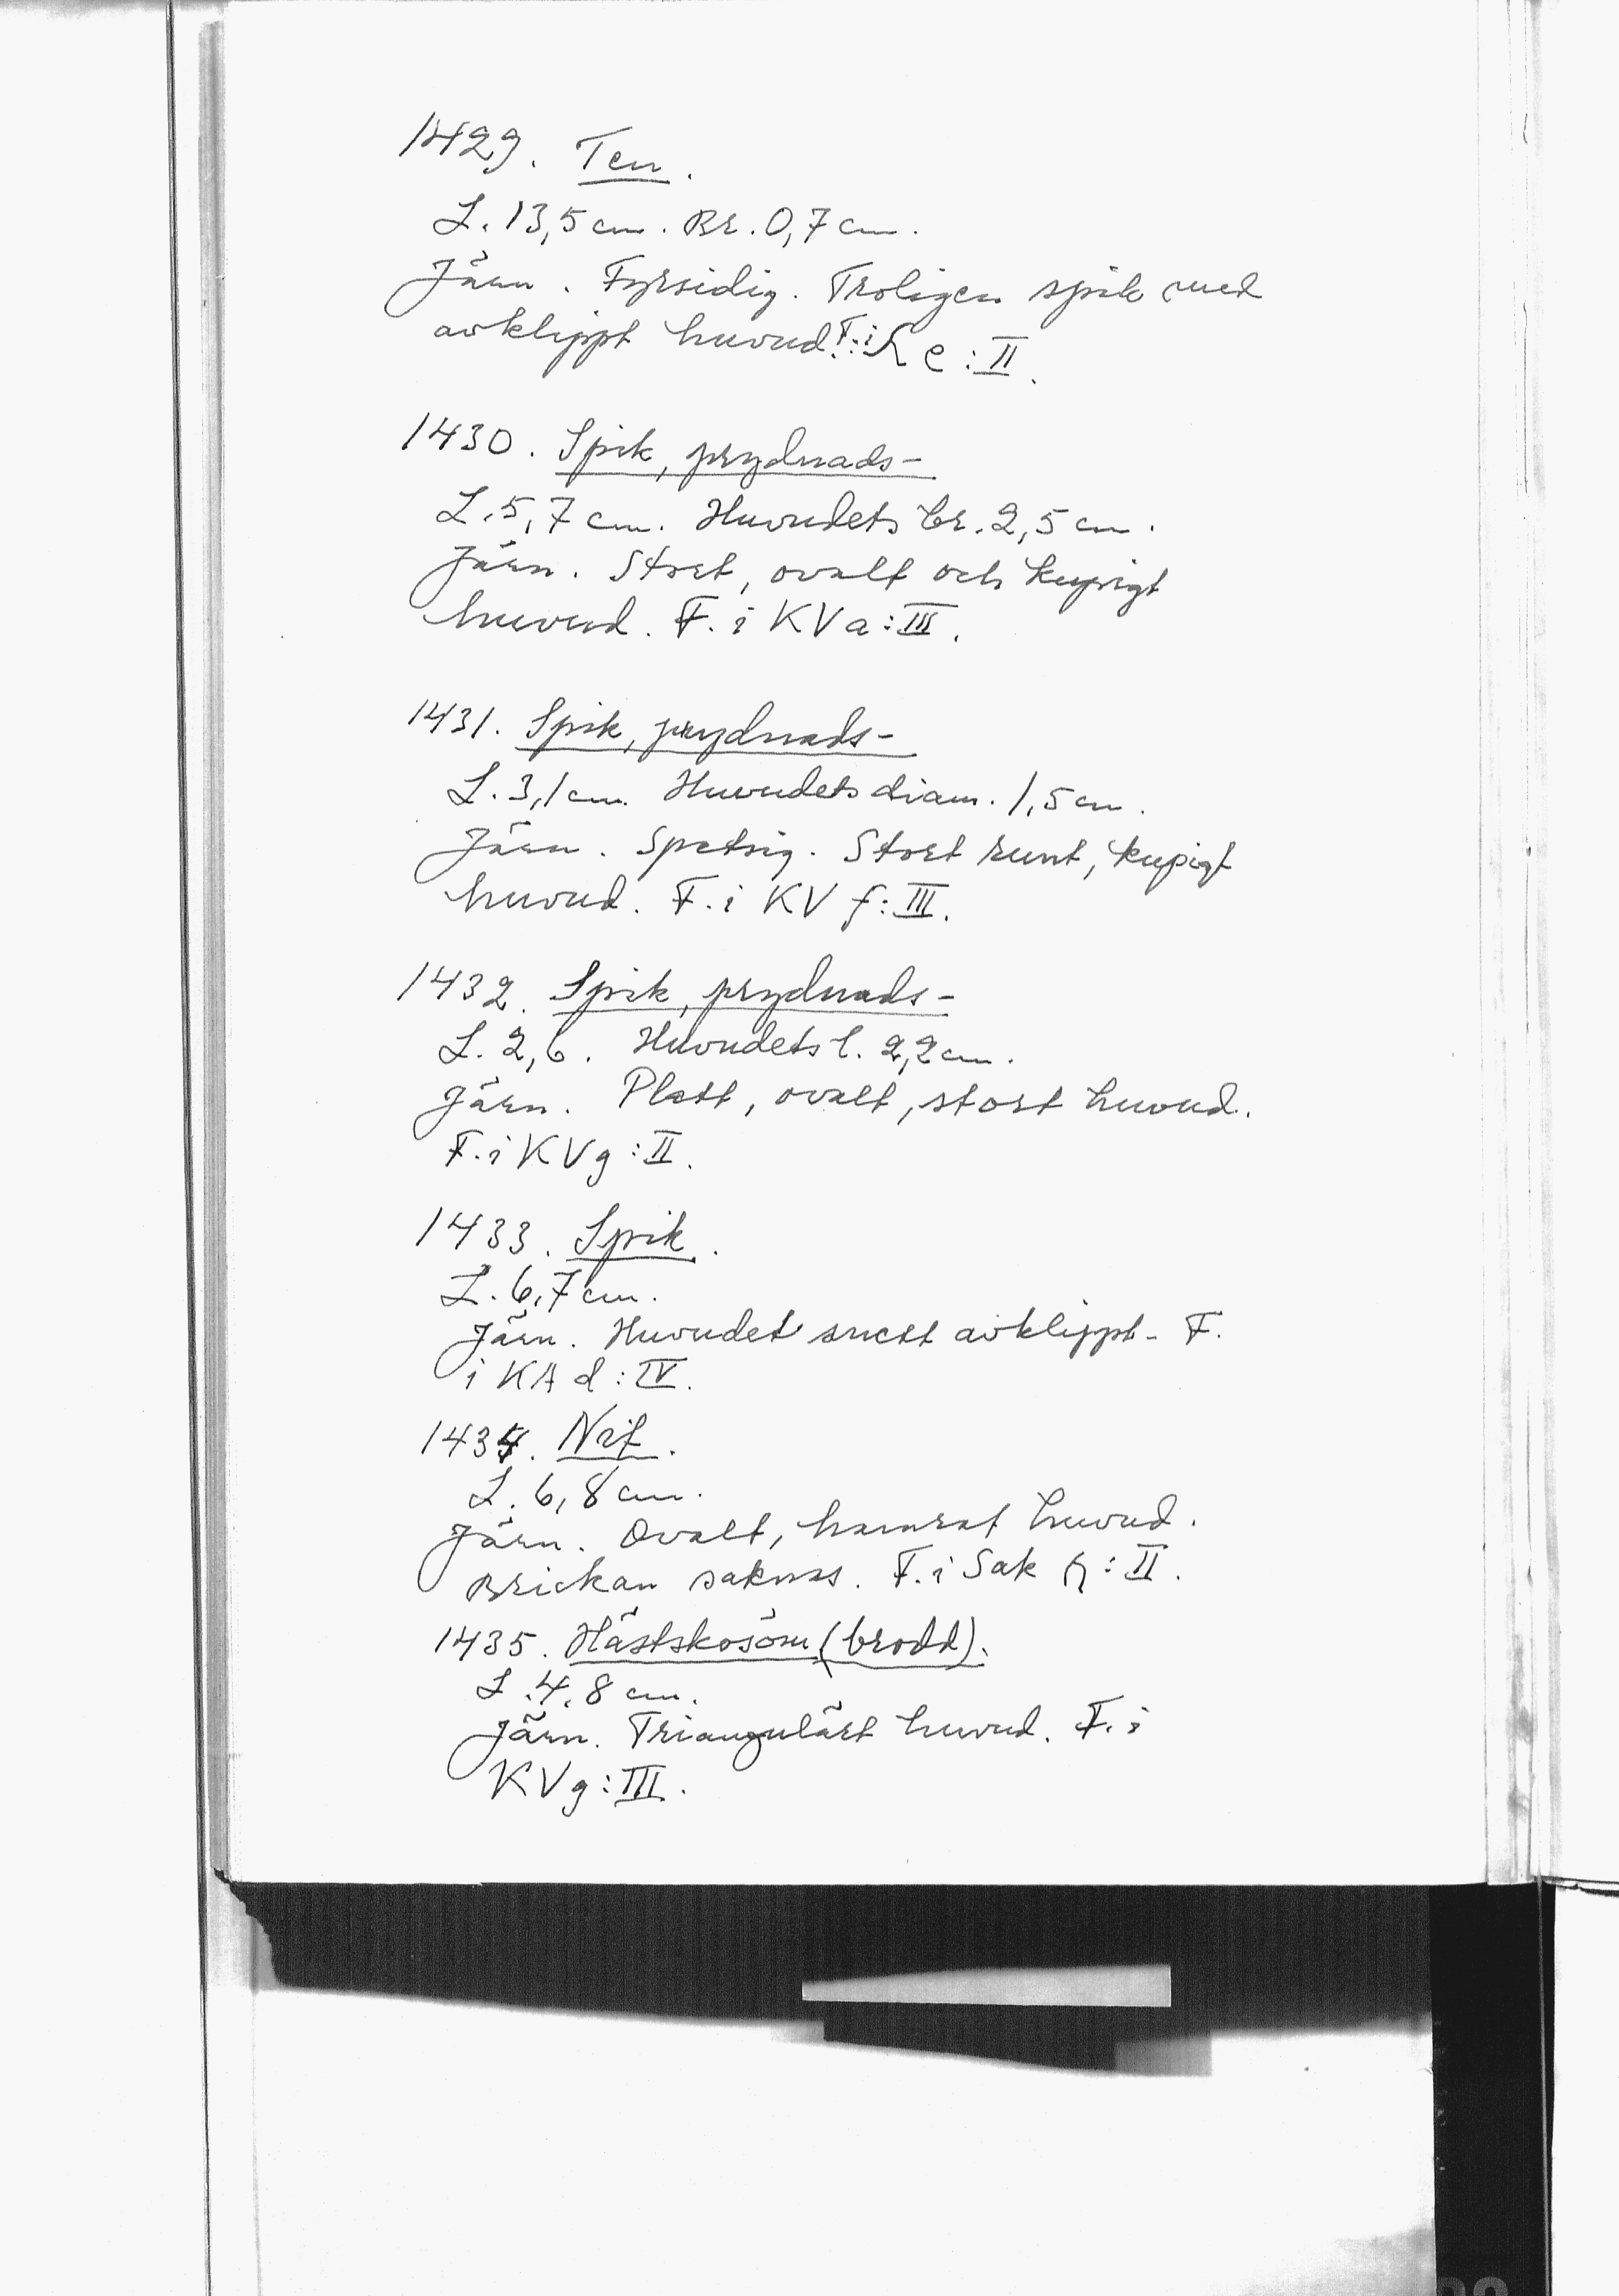 1429. Ten.
L. 13,5 cm. Br. 0,7 cm.
Järn. Fyrsidig. Troligen spik med
avklippt huvud. F. i e:II.
1430. Spik, prydnads-
L. 5,7 cm. Huvudets br. 2,5 cm.
Järn. Stort, ovalt och kupigt
huvud. F. i KV a:III.
1431. Spik, prydnads-
L. 3,1 cm. Huvudets diam. 1,5 cm.
Järn. Spetsig. Stort runt, kupigt
huvud. F. i KV f:III.
1432. Spik, prydnads-
L. 2,6. Huvudets l. 2,2 cm.
Järn. Platt, ovalt, stort huvud.
F. i KV g:II.
1433. Spik.
L. 6,7 cm.
Järn. Huvudet snett avklippt. F.
i KA d:IV.
1434. Nit.
L. 6,8 cm.
Järn. Ovalt, hamrat huvud.
Brickan saknas. F. i Sak :II.
1435. Hästskosöm (brodd).
L. 4,8 cm.
Järn. Triangulärt huvud. F. i
KV g:III.